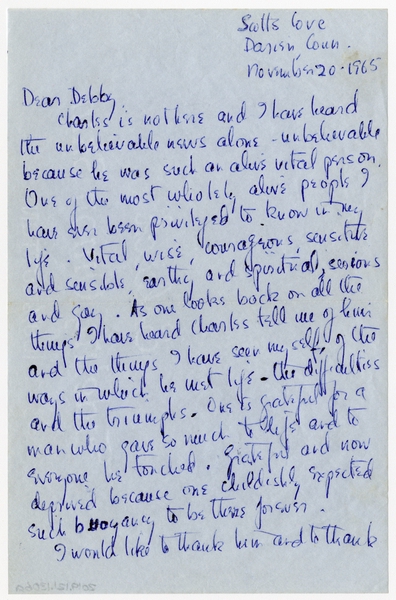 Scotts Cove
Darien Conn.
November 20 - 1965
Dear Debby
Charles is not here and I have heard
the unbelievable news alone - unbelievable
because he was such an alive vital person.
One of the most wholely alive people I
have ever been privileged to know in my
life. Vital, wise, courageous, sensitive
and sensible, earthy and spiritual, serious
and gay. As one looks back on all the
things I have heard Charles tell me of him
and the things I have seen myself, of the
ways in which he met life - the difficulties
and the triumphs. One is grateful for a
man who gave so much to life and to
everyone he touched. Grateful and now
deprived because one childishly expected
such buoyancy to be there forever.
I would like to thank him and to thank